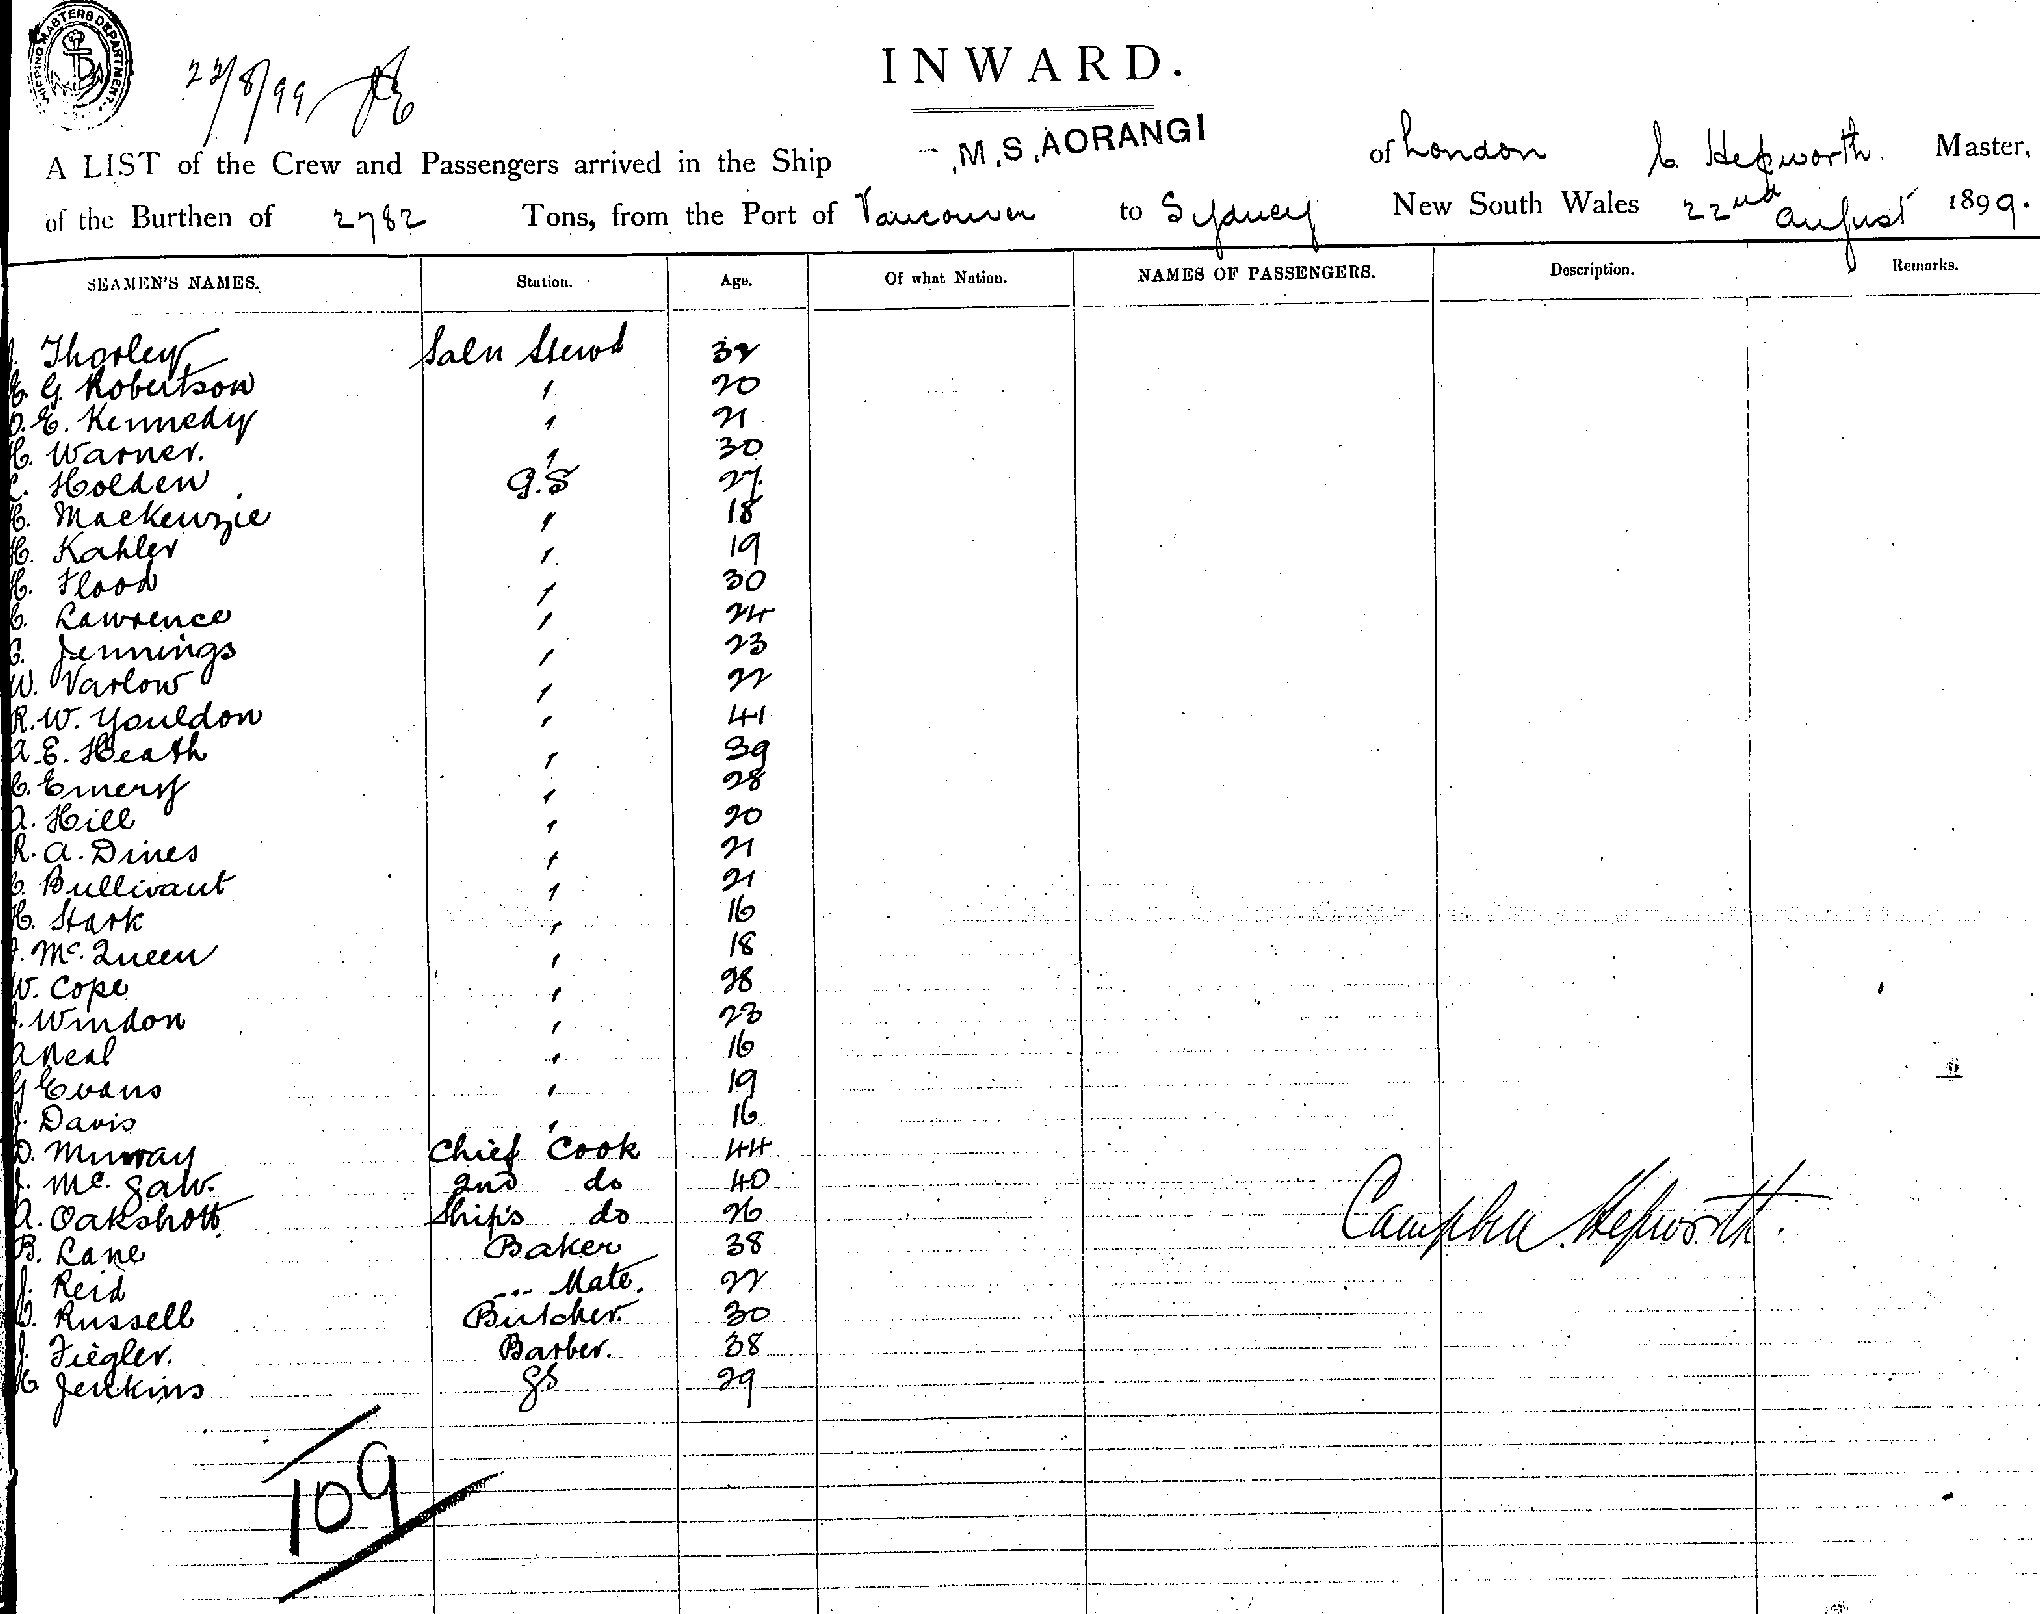 SHIPPING MASTERS DEPARTMENT
22/8/99
INWARD.
A LIST of the Crew and Passengers arrived in the Ship M.S. AORANGI of London C. Hepworth. Master,
of the Burthen of 2782 Tons, from the Port of Vancouver to Sydney New South Wales 22nd August 1899.
SEAMEN'S NAMES. Station. Age. Of what Nation. NAMES OF PASSENGERS. Description. Remarks.
Thorley Saln Stewd 32
G Robertson " 20
E. Kennedy " 21
H. Warner. " 30
Holden G.S 27
Mackenzie " 18
H. Kahler " 19
H. Flood " 30
Lawrence " 24
Jennings " 23
W. Varlow " 22
R. W. Youldon " 41
A. E. Heath " 39
C. Emery " 28
A. Hill " 20
R. A. Dines " 21
C. Bullivant " 21
H. Stark " 16
McQueen " 18
W. Cope " 28
J. Windon " 23
A Neal " 16
G Evans " 19
J. Davis " 16
D. Murray Chief Cook 44
J. McGaw. 2nd do 40
A. Oakshott Ship's do 26
B. Lane Baker 38
J. Reid ... Mate. 22
Russell Butcher. 30
J. Fiegler. Barber. 38
Jenkins GS 29
Campbell Hepworth.
109